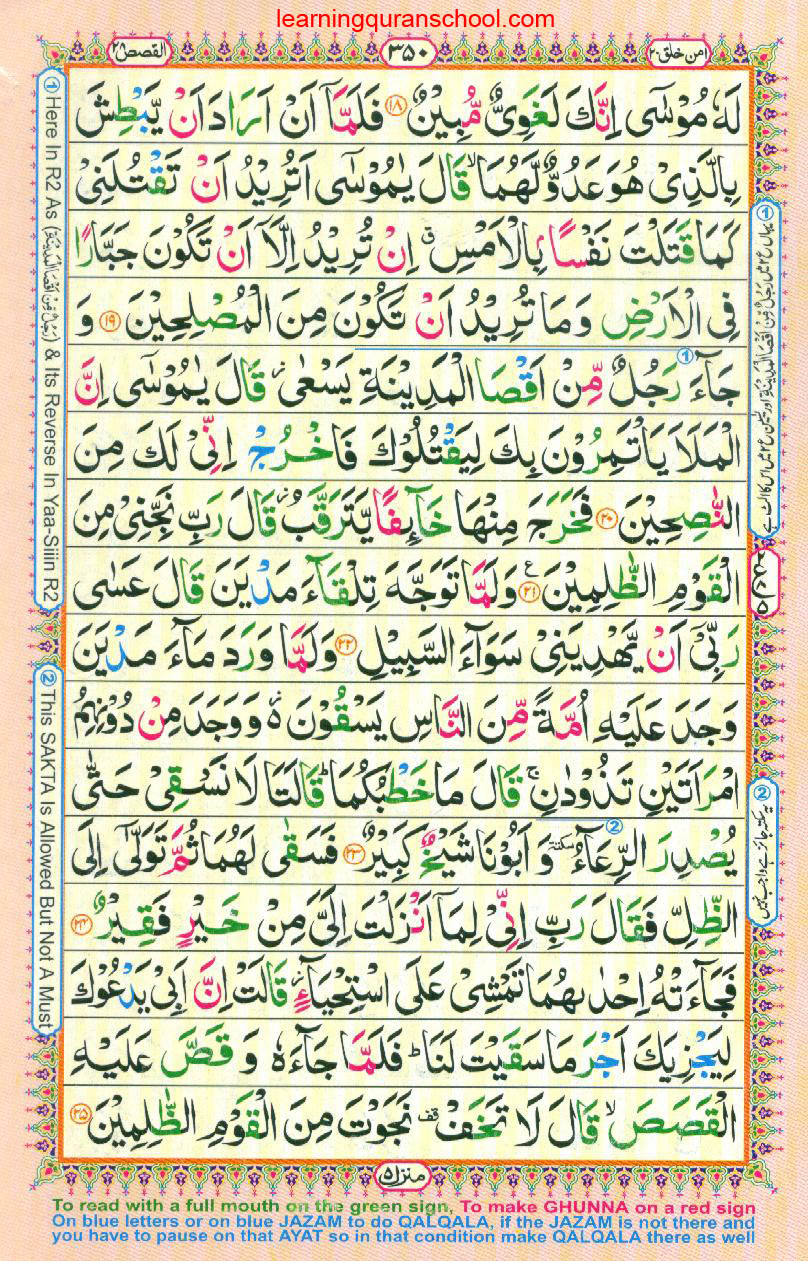 learningquranschool.com
امن خلق ۲۰
۳۵۰
القصص ۲۸
لَهٗ مُوْسٰۤى اِنَّكَ لَغَوِیٌّ مُّبِیْنٌ ۱۸ فَلَمَّاۤ اَنْ اَرَادَ اَنْ یَّبْطِشَ
بِالَّذِیْ هُوَ عَدُوٌّ لَّهُمَا ۙ قَالَ یٰمُوْسٰۤى اَتُرِیْدُ اَنْ تَقْتُلَنِیْ
كَمَا قَتَلْتَ نَفْسًۢا بِالْاَمْسِ ۖۗ اِنْ تُرِیْدُ اِلَّاۤ اَنْ تَكُوْنَ جَبَّارًا
فِی الْاَرْضِ وَ مَا تُرِیْدُ اَنْ تَكُوْنَ مِنَ الْمُصْلِحِیْنَ ۱۹ وَ
جَآءَ رَجُلٌ مِّنْ اَقْصَا الْمَدِیْنَةِ یَسْعٰى ؗ قَالَ یٰمُوْسٰۤى اِنَّ
الْمَلَاَ یَاْتَمِرُوْنَ بِكَ لِیَقْتُلُوْكَ فَاخْرُجْ اِنِّیْ لَكَ مِنَ
النّٰصِحِیْنَ ۲۰ فَخَرَجَ مِنْهَا خَآىِٕفًا یَّتَرَقَّبُ ؗ قَالَ رَبِّ نَجِّنِیْ مِنَ
الْقَوْمِ الظّٰلِمِیْنَ ۲۱ ع وَ لَمَّا تَوَجَّهَ تِلْقَآءَ مَدْیَنَ قَالَ عَسٰى
رَبِّیْۤ اَنْ یَّهْدِیَنِیْ سَوَآءَ السَّبِیْلِ ۲۲ وَ لَمَّا وَرَدَ مَآءَ مَدْیَنَ
وَجَدَ عَلَیْهِ اُمَّةً مِّنَ النَّاسِ یَسْقُوْنَ ۬ۙ وَ وَجَدَ مِنْ دُوْنِهِمُ
امْرَاَتَیْنِ تَذُوْدٰنِ ۚ قَالَ مَا خَطْبُكُمَا ؕ قَالَتَا لَا نَسْقِیْ حَتّٰى
یُصْدِرَ الرِّعَآءُ سكتة وَ اَبُوْنَا شَیْخٌ كَبِیْرٌ ۲۳ فَسَقٰى لَهُمَا ثُمَّ تَوَلّٰۤى اِلَى
الظِّلِّ فَقَالَ رَبِّ اِنِّیْ لِمَاۤ اَنْزَلْتَ اِلَیَّ مِنْ خَیْرٍ فَقِیْرٌ ۲۴
فَجَآءَتْهُ اِحْدٰىهُمَا تَمْشِیْ عَلَى اسْتِحْیَآءٍ ؗ قَالَتْ اِنَّ اَبِیْ یَدْعُوْكَ
لِیَجْزِیَكَ اَجْرَ مَا سَقَیْتَ لَنَا ؕ فَلَمَّا جَآءَهٗ وَ قَصَّ عَلَیْهِ
الْقَصَصَ ۙ قَالَ لَا تَخَفْ ۫ قف نَجَوْتَ مِنَ الْقَوْمِ الظّٰلِمِیْنَ ۲۵
① یہاں ع ۲ میں رَجُلٌ مِّنْ اَقْصَا الْمَدِیْنَةِ اور یٰسٓ ع ۲ میں اس کا الٹ ہے
② یہ سکتہ جائز ہے واجب نہیں
① Here In R2 As (رَجُلٌ مِّنْ اَقْصَا الْمَدِیْنَةِ) & Its Reverse In Yaa-Siiin R2
② This SAKTA Is Allowed But Not A Must
منزل ۵
To read with a full mouth on the green sign, To make GHUNNA on a red sign
On blue letters or on blue JAZAM to do QALQALA, if the JAZAM is not there and
you have to pause on that AYAT so in that condition make QALQALA there as well